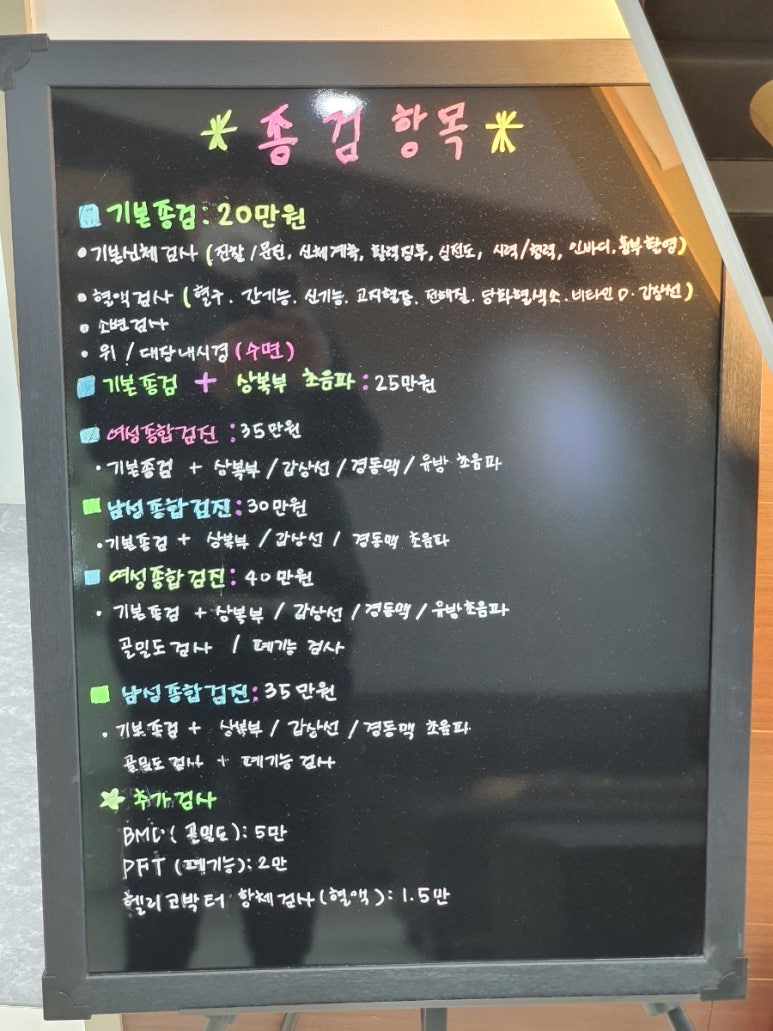 종검항목
기본종검: 20만원
• 기본신체검사 (진찰/문진, 신체계측, 혈력징후, 심전도, 시력/청력, 인바디, 흉부촬영)
• 혈액검사 (혈구. 간기능. 신기능. 고지혈증. 전해질. 당화혈색소. 비타민D. 갑상선)
• 소변검사
• 위 / 대장내시경 (수면)
기본종검 + 상복부 초음파: 25만원
여성종합검진: 35만원
• 기본종검 + 상복부 / 갑상선 / 경동맥 / 유방초음파
남성종합검진: 30만원
• 기본종검 + 상복부 / 갑상선 / 경동맥 초음파
여성종합검진: 40만원
• 기본종검 + 상복부 / 갑상선 / 경동맥 / 유방초음파
골밀도검사 / 폐기능 검사
남성종합검진: 35만원
• 기본종검 + 상복부 / 갑상선 / 경동맥 초음파
골밀도검사 + 폐기능 검사
추가검사
BMD (골밀도): 5만
PFT (폐기능): 2만
헬리코박터 항체검사 (혈액): 1.5만